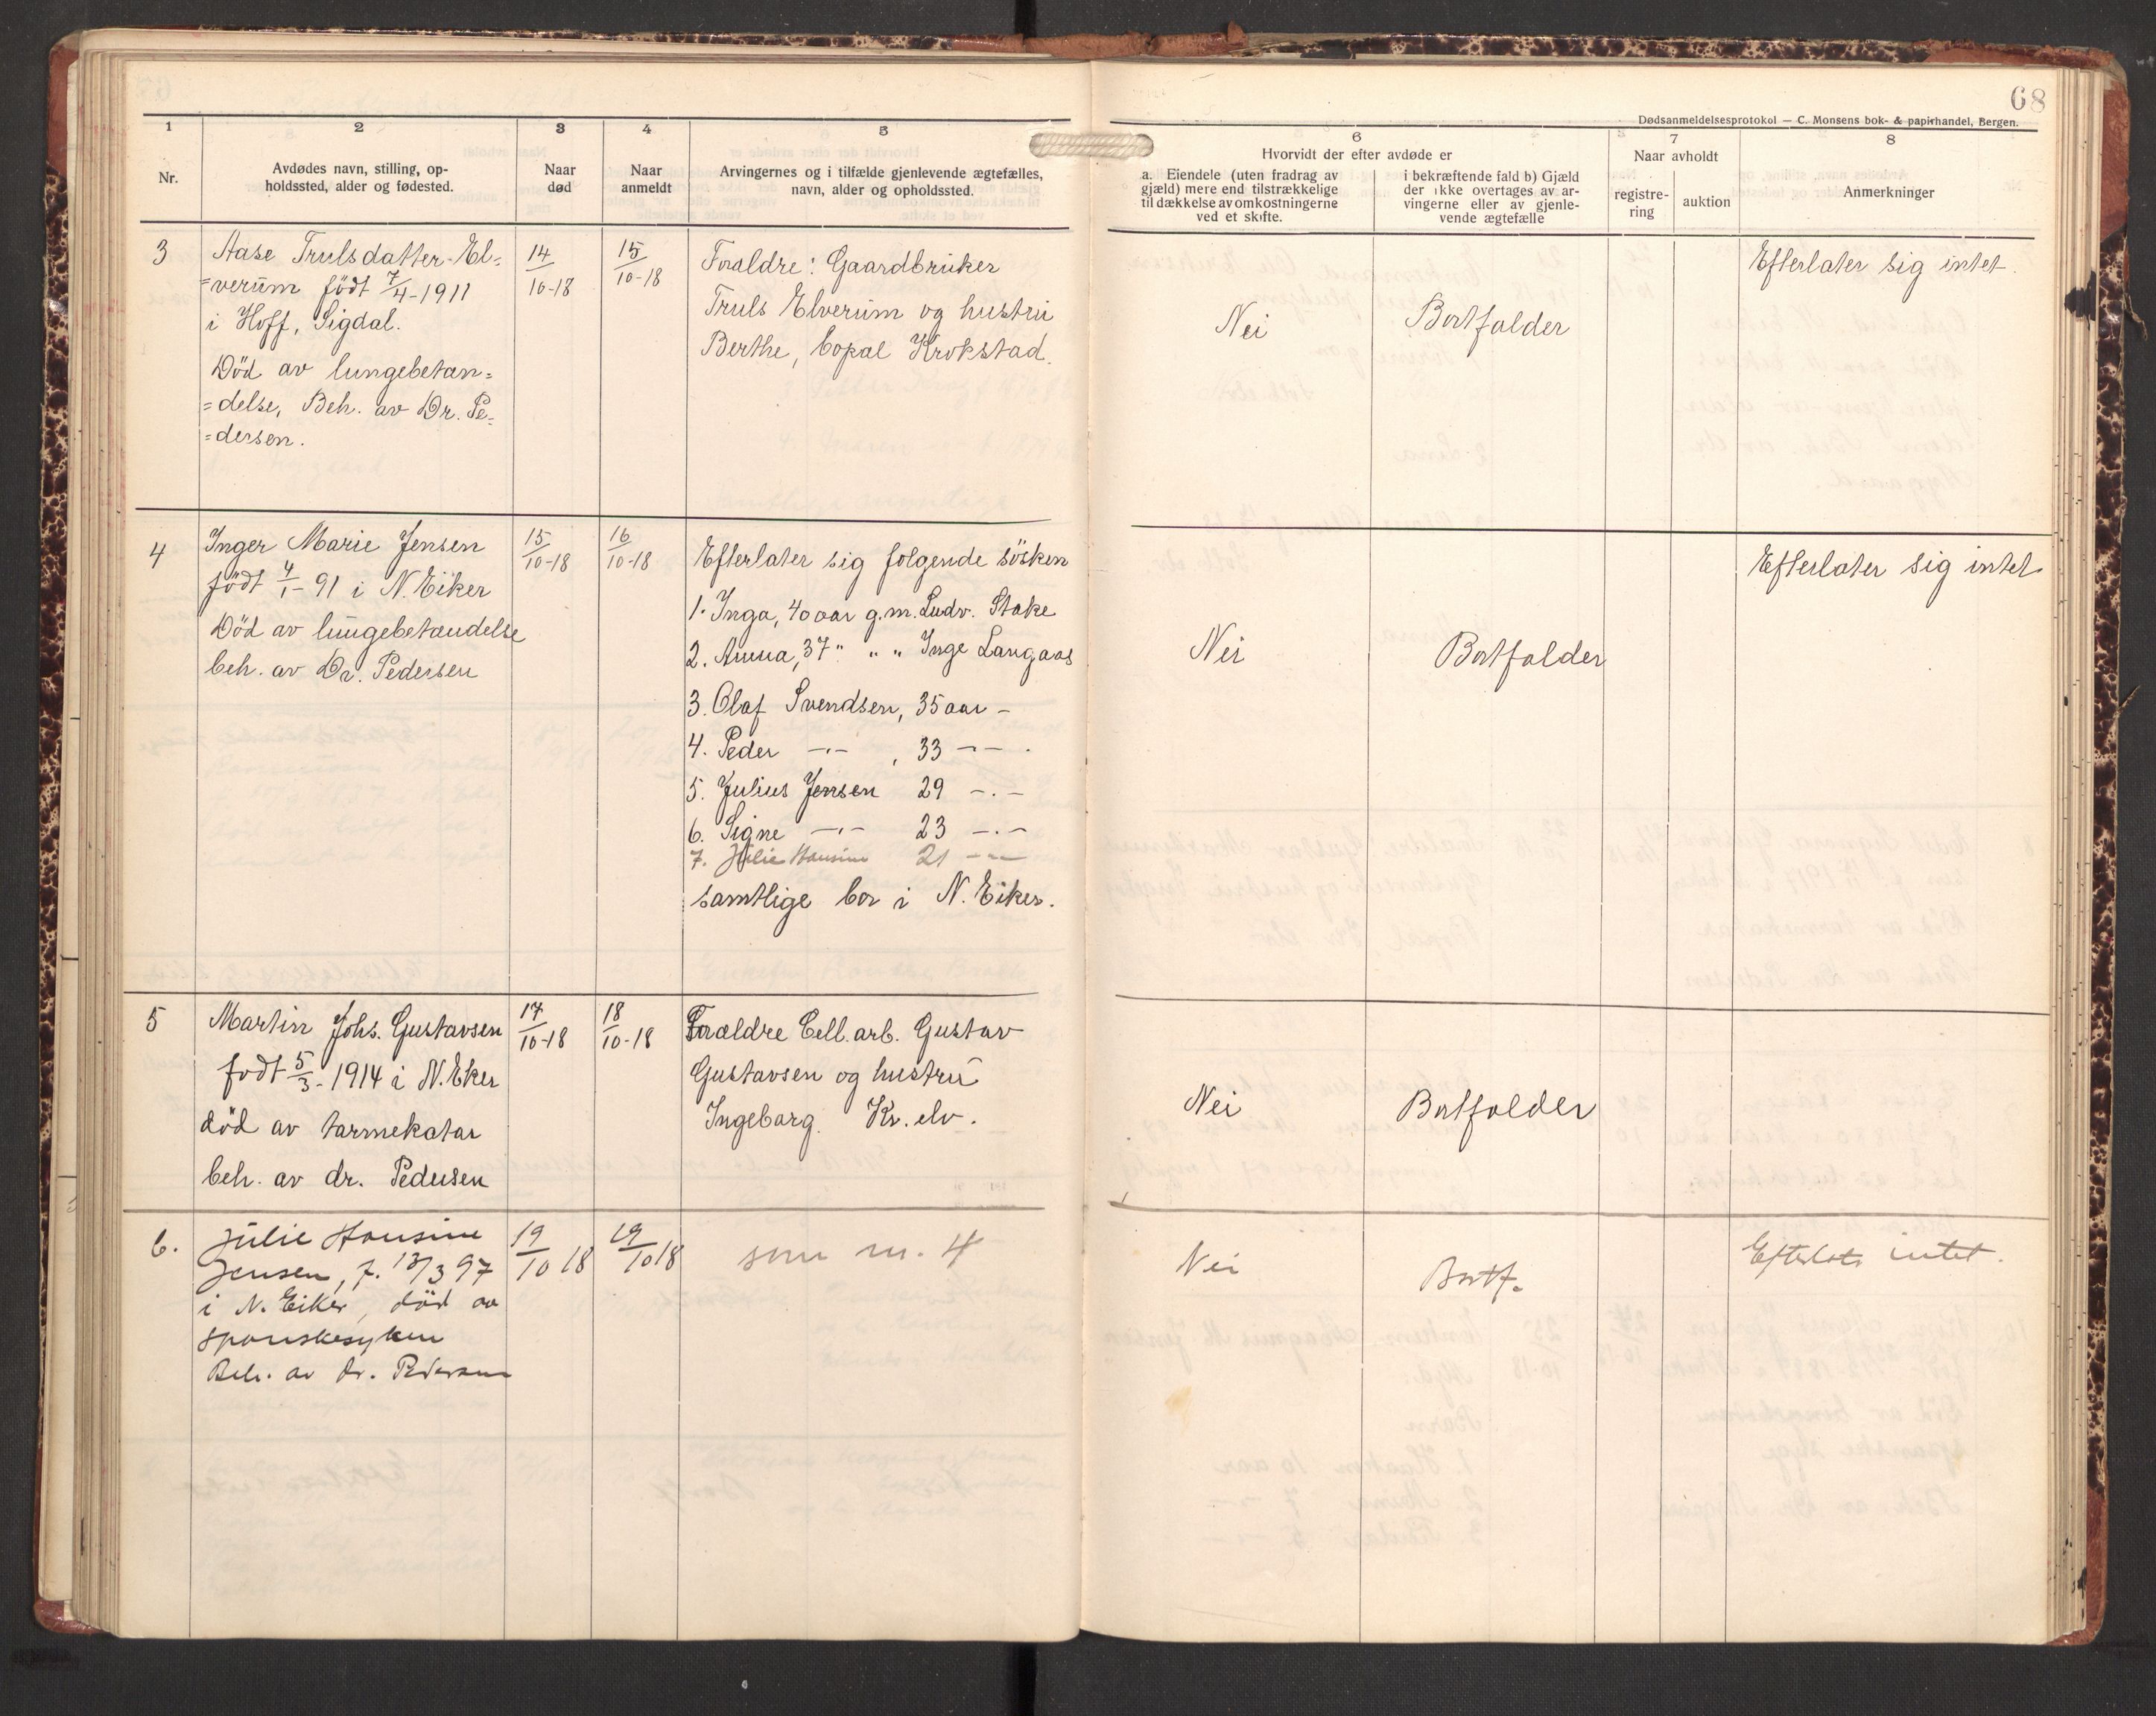 68
Dødsanmeldelsesprotokol — C. Monsens bok- & papirhandel, Bergen.
1
2
3
4
5
6
7
8
Nr.
Avdødes navn, stilling, op-
holdssted, alder og fødested.
Naar
død
Naar
anmeldt
Arvingernes og i tilfælde gjenlevende ægtefælles,
navn, alder og opholdssted.
Hvorvidt der efter avdøde er
a. Eiendele (uten fradrag av
gjæld) mere end tilstrækkelige
til dækkelse av omkostningerne
ved et skifte.
i bekræftende fald b) Gjæld
der ikke overtages av ar-
vingerne eller av gjenle-
vende ægtefælle
Naar avholdt
registre-
ring
auktion
Anmerkninger
3
Aase Trulsdatter-El=
=verum födt 7/4-1911
i Hoff, Sigdal.
Död av lungebetan=
=delse, Beh. av Dr. Pe=
=dersen.
14/10-18
15/10-18
Foraldre: Gaardbruker
Truls Elverum og hustru
Berthe, bopal Krokstad.
Nei
Bortfalder
Efterlater sig intet.
4
Inger Marie Jensen
födt 4/1-91 i N. Eiker
Död av lungebetandelse
beh. av Dr. Pedersen
15/10-18
16/10-18
Efterlater sig folgende sösken
1. Inga, 40 aar g.m. Ludv. Stake
2. Anna, 37 " " " Inge Langaas
3. Olaf Svendsen, 35 aar -
4. Peder -·- , 33 -·- .
5. Julius Jensen 29 -·-
6. Signe -·- 23 -·-
7. Julie Hansine 21 -·-
samtlige bor i N. Eiker.
Nei
Bortfalder
Efterlater sig intet
5
Martin Johs. Gustavsen
fodt 5/3-1914 i N. Eker
död av tarmekatar
beh. av dr. Pedersen
17/10-18
18/10-18
Foræeldre Cell. arb. Gustav
Gustavsen og hustru
Ingeborg. Kr. elv.
Nei
Bortfalder
6.
Julie Hansine
Jensen, f. 13/3 97
i N. Eiker, död av
spanskesyken
Beh. av dr. Pedersen
19/10 18
19/10 18
som nr. 4
Nei
Bortf.
Efterlater intet.